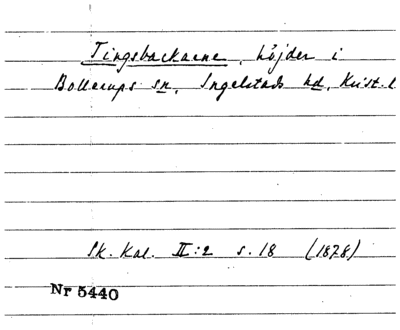 Tingsbackarne, höjder i
Bollerups sn, Ingelstads hd, Krist. l
Sk. Kal. II:2 s. 18 (1878)
Nr 5440